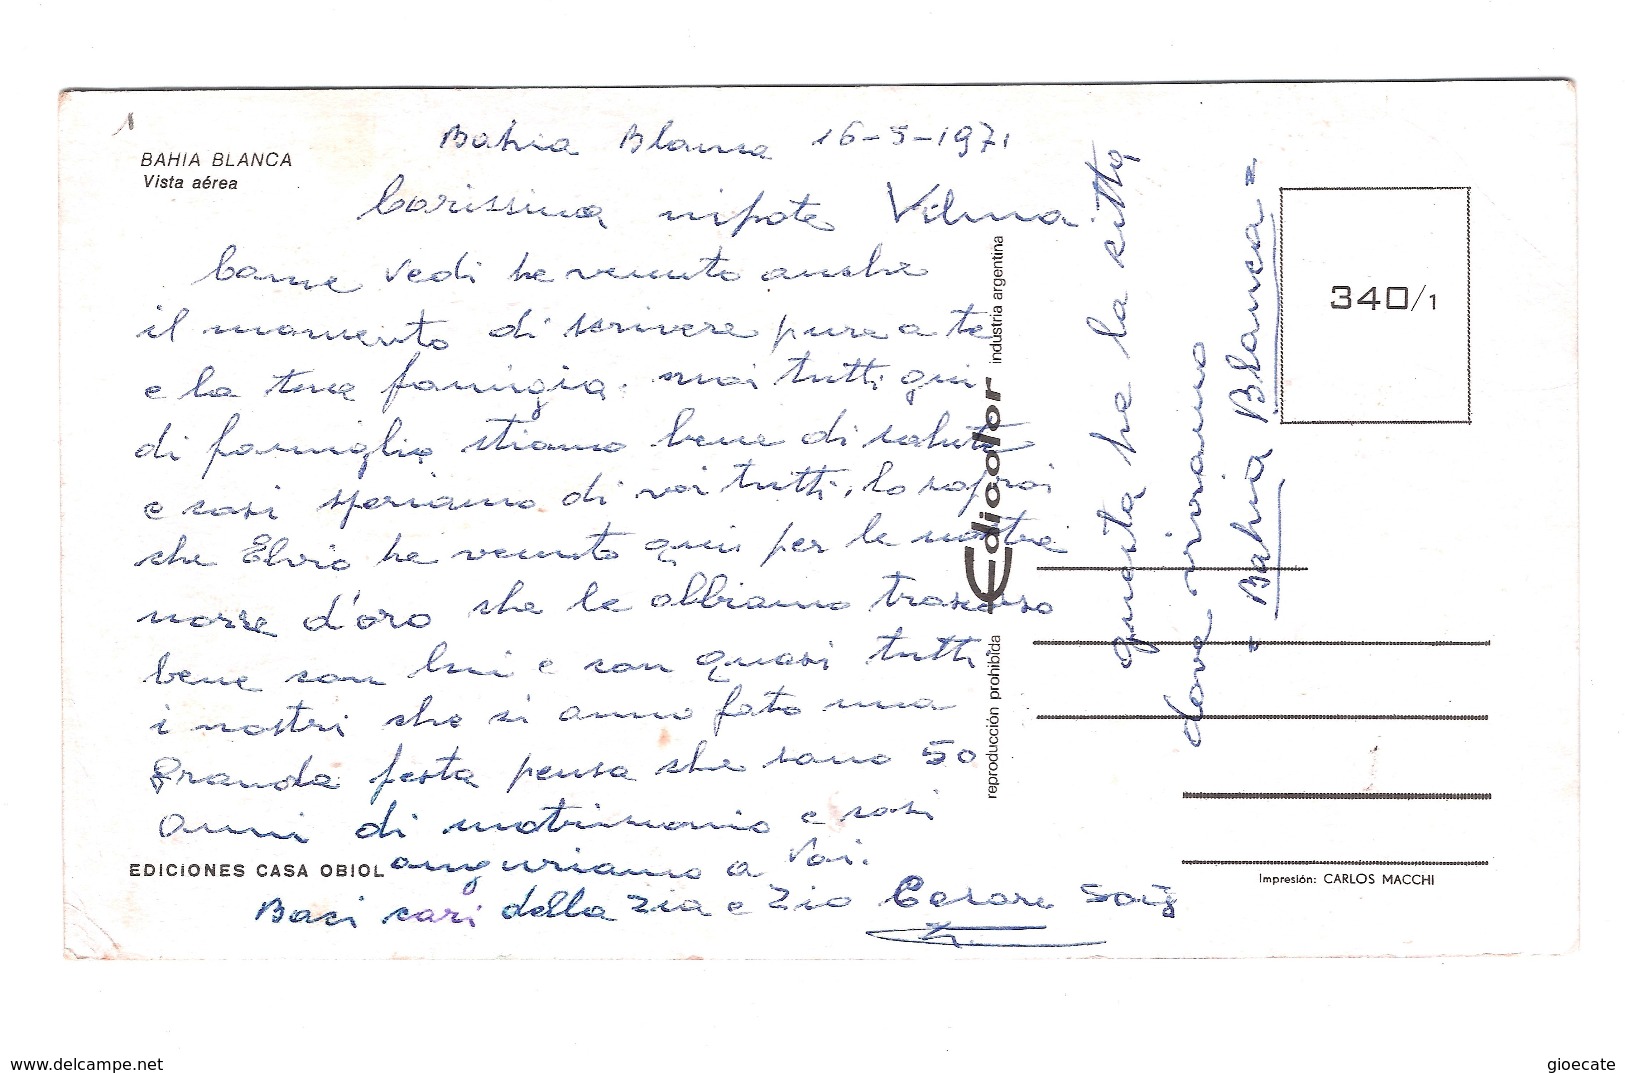 1
BAHIA BLANCA
Vista aérea
Bahia Blanca 16-5-1971
Carissima nipote Vilma
Come vedi he venuto anche
il momento di scrivere pure a te
e la tua famigia. noi tutti qui
di famiglia stiamo bene di salute
e cosi speriamo di voi tutti, lo saprai
che Elvio he venuto qui per le nostre
nosse d'oro che le abbiamo trascorso
bene con lui e con quasi tutti
i nostri che si anno fato una
granda festa pensa che sono 50
anni di matrimonio e cosi
anguriamo a Voi.
Baci cari della Zia e Zio Cesare
questa he la citta
dove viviamo
= Bahia Blanca =
industria argentina
Edicolor
reproducción prohibida
340/1
EDICIONES CASA OBIOL
Impresión: CARLOS MACCHI
www.delcampe.net
gioecate